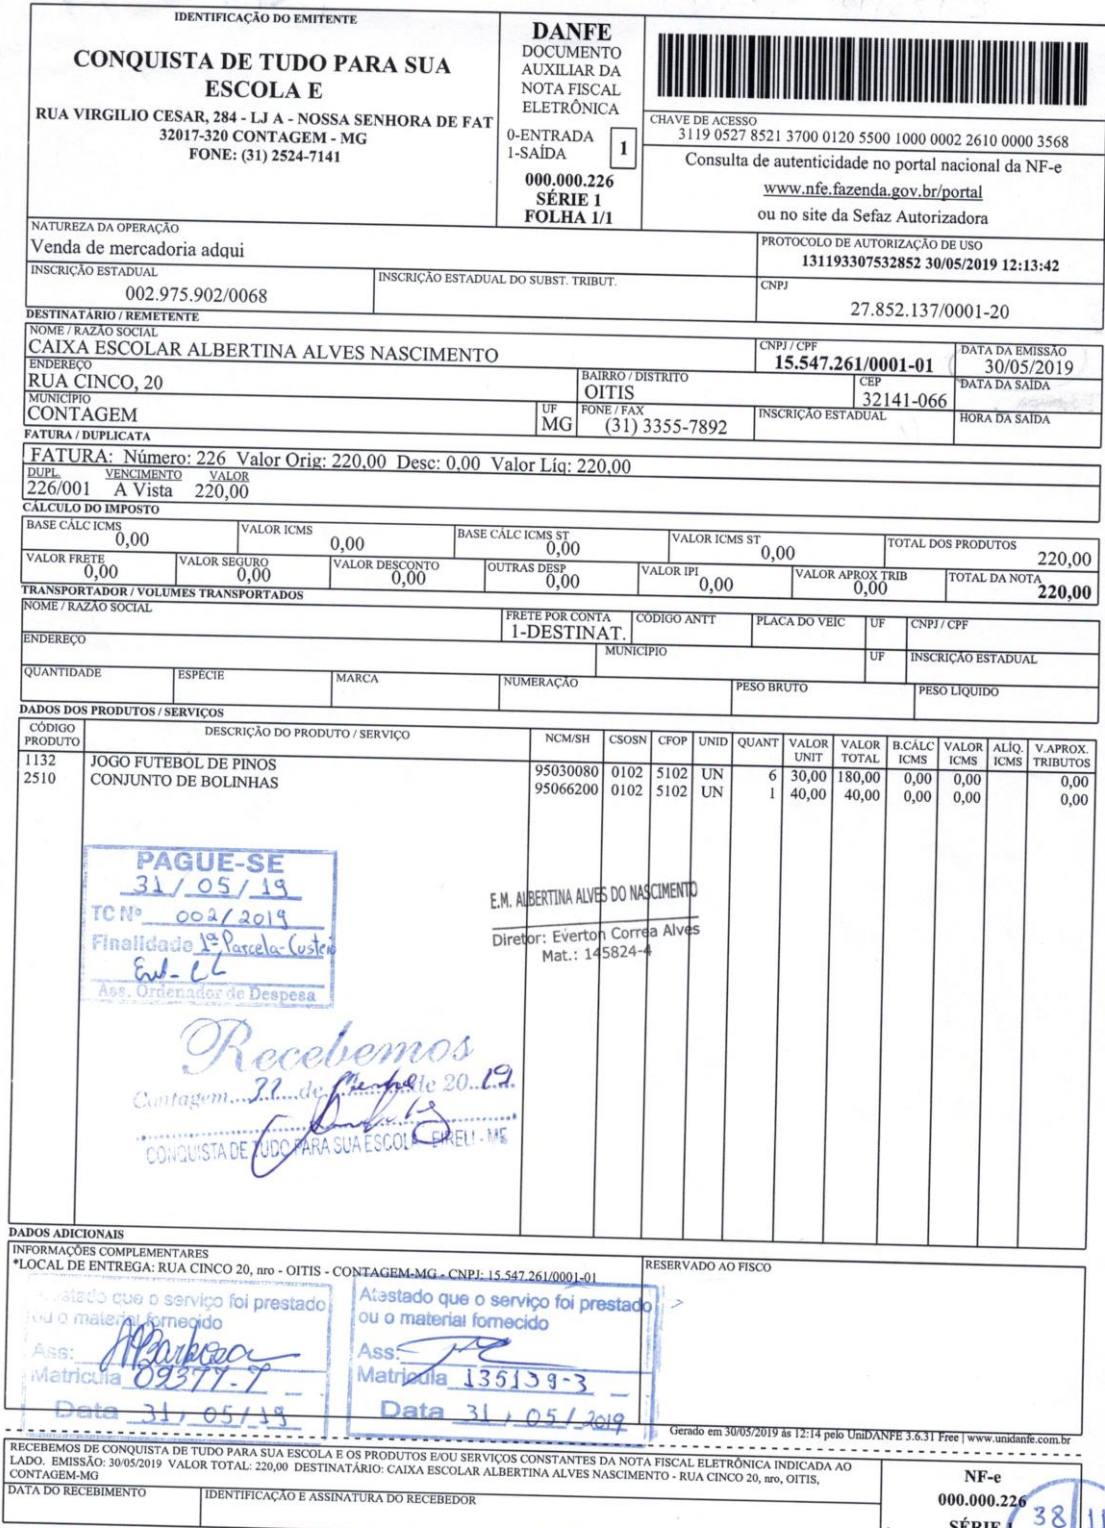 IDENTIFICAÇÃO DO EMITENTE
CONQUISTA DE TUDO PARA SUA
ESCOLA E
RUA VIRGILIO CESAR, 284 - LJ A - NOSSA SENHORA DE FAT
32017-320 CONTAGEM - MG
FONE: (31) 2524-7141
DANFE
DOCUMENTO
AUXILIAR DA
NOTA FISCAL
ELETRÔNICA
0-ENTRADA
1-SAÍDA
1
000.000.226
SÉRIE 1
FOLHA 1/1
CHAVE DE ACESSO
3119 0527 8521 3700 0120 5500 1000 0002 2610 0000 3568
Consulta de autenticidade no portal nacional da NF-e
www.nfe.fazenda.gov.br/portal
ou no site da Sefaz Autorizadora
NATUREZA DA OPERAÇÃO
Venda de mercadoria adqui
PROTOCOLO DE AUTORIZAÇÃO DE USO
131193307532852 30/05/2019 12:13:42
INSCRIÇÃO ESTADUAL
002.975.902/0068
INSCRIÇÃO ESTADUAL DO SUBST. TRIBUT.
CNPJ
27.852.137/0001-20
DESTINATÁRIO / REMETENTE
NOME / RAZÃO SOCIAL
CAIXA ESCOLAR ALBERTINA ALVES NASCIMENTO
CNPJ / CPF
15.547.261/0001-01
DATA DA EMISSÃO
30/05/2019
ENDEREÇO
RUA CINCO, 20
BAIRRO / DISTRITO
OITIS
CEP
32141-066
DATA DA SAÍDA
MUNICÍPIO
CONTAGEM
UF
MG
FONE / FAX
(31) 3355-7892
INSCRIÇÃO ESTADUAL
HORA DA SAÍDA
FATURA / DUPLICATA
FATURA: Número: 226 Valor Orig: 220,00 Desc: 0,00 Valor Líq: 220,00
DUPL. VENCIMENTO VALOR
226/001 A Vista 220,00
CÁLCULO DO IMPOSTO
BASE CÁLC ICMS
0,00
VALOR ICMS
0,00
BASE CÁLC ICMS ST
0,00
VALOR ICMS ST
0,00
TOTAL DOS PRODUTOS
220,00
VALOR FRETE
0,00
VALOR SEGURO
0,00
VALOR DESCONTO
0,00
OUTRAS DESP
0,00
VALOR IPI
0,00
VALOR APROX TRIB
0,00
TOTAL DA NOTA
220,00
TRANSPORTADOR / VOLUMES TRANSPORTADOS
NOME / RAZÃO SOCIAL
FRETE POR CONTA
1-DESTINAT.
CÓDIGO ANTT
PLACA DO VEÍC
UF
CNPJ / CPF
ENDEREÇO
MUNICÍPIO
UF
INSCRIÇÃO ESTADUAL
QUANTIDADE
ESPÉCIE
MARCA
NUMERAÇÃO
PESO BRUTO
PESO LÍQUIDO
DADOS DOS PRODUTOS / SERVIÇOS
CÓDIGO PRODUTO DESCRIÇÃO DO PRODUTO / SERVIÇO NCM/SH CSOSN CFOP UNID QUANT VALOR UNIT VALOR TOTAL B.CÁLC ICMS VALOR ICMS ALÍQ. ICMS V.APROX. TRIBUTOS
1132 JOGO FUTEBOL DE PINOS 95030080 0102 5102 UN 6 30,00 180,00 0,00 0,00 0,00
2510 CONJUNTO DE BOLINHAS 95066200 0102 5102 UN 1 40,00 40,00 0,00 0,00 0,00
PAGUE-SE
31/05/19
TC Nº 002/2019
Finalidade 1ª Parcela-Custeio
Ass. Ordenador de Despesa
E.M. ALBERTINA ALVES DO NASCIMENTO
Diretor: Everton Correa Alves
Mat.: 145824-4
Recebemos
Contagem...31...de de 20..19.
CONQUISTA DE TUDO PARA SUA ESCOLA EIRELI - ME
DADOS ADICIONAIS
INFORMAÇÕES COMPLEMENTARES
*LOCAL DE ENTREGA: RUA CINCO 20, nro - OITIS - CONTAGEM-MG - CNPJ: 15.547.261/0001-01
RESERVADO AO FISCO
Atestado que o serviço foi prestado
ou o material fornecido
Ass:
Matricula 09377-7
Data 31/05/19
Atestado que o serviço foi prestado
ou o material fornecido
Ass:
Matricula 135139-3
Data 31/05/2019
Gerado em 30/05/2019 às 12:14 pelo UniDANFE 3.6.31 Free | www.unidanfe.com.br
RECEBEMOS DE CONQUISTA DE TUDO PARA SUA ESCOLA E OS PRODUTOS E/OU SERVIÇOS CONSTANTES DA NOTA FISCAL ELETRÔNICA INDICADA AO
LADO. EMISSÃO: 30/05/2019 VALOR TOTAL: 220,00 DESTINATÁRIO: CAIXA ESCOLAR ALBERTINA ALVES NASCIMENTO - RUA CINCO 20, nro, OITIS,
CONTAGEM-MG
DATA DO RECEBIMENTO
IDENTIFICAÇÃO E ASSINATURA DO RECEBEDOR
NF-e
000.000.226
SÉRIE 1
38